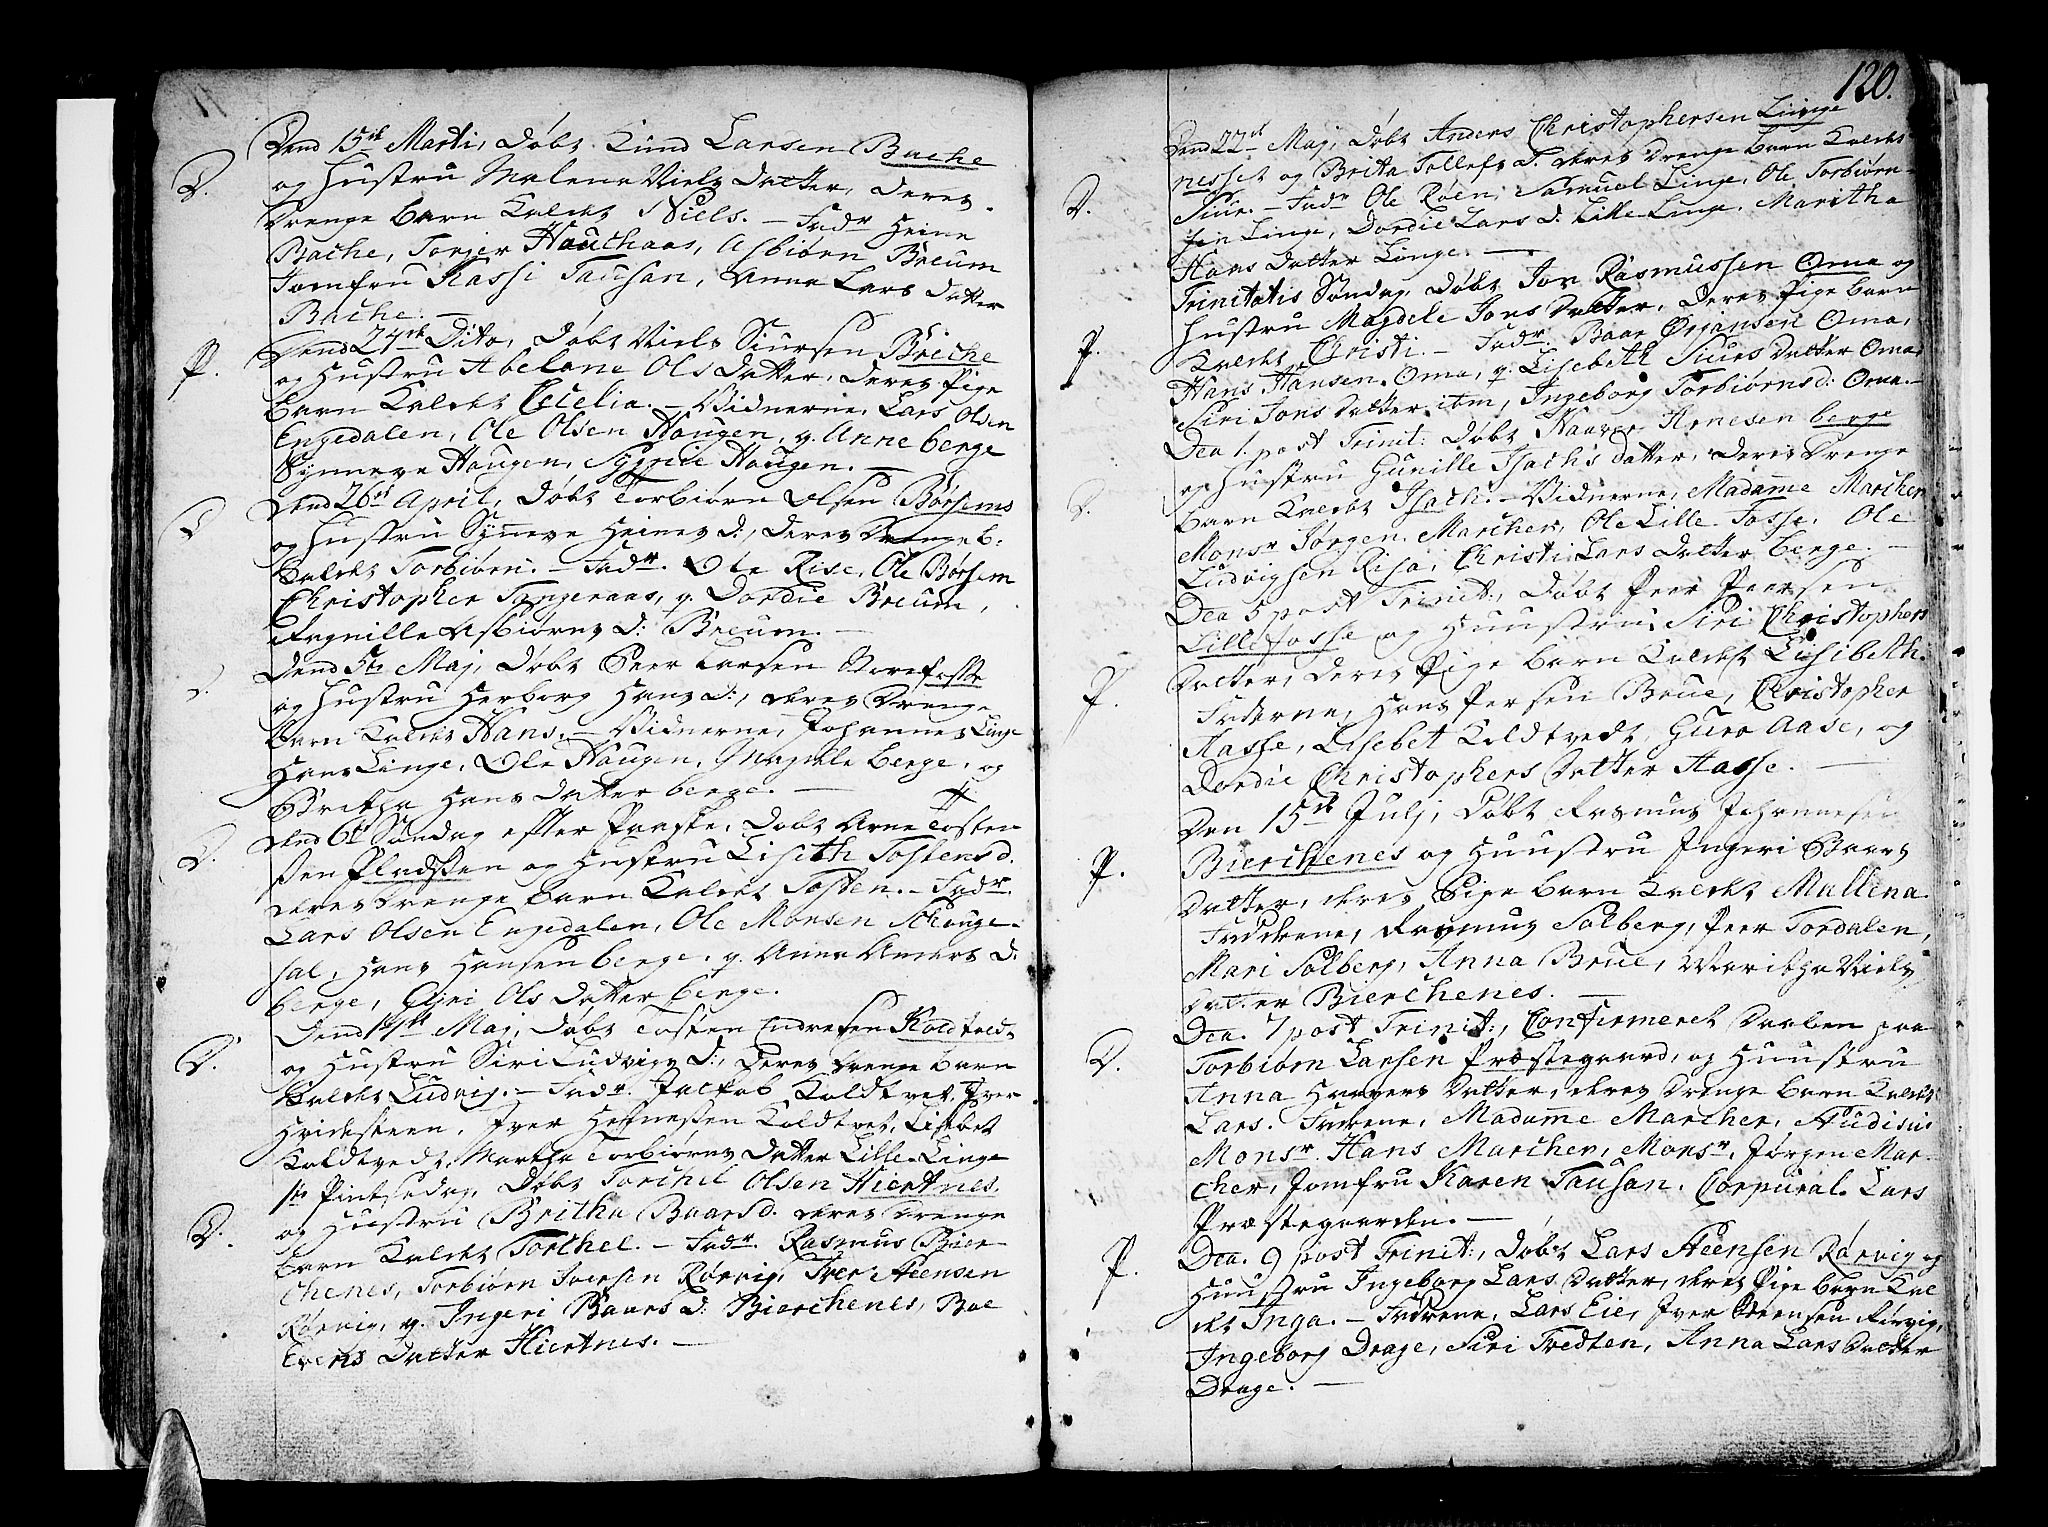 Dend 15de Marti, Døbt Knud Larsen Bache
D.
og Hustru Malena Niels Datter, Deres
Drenge barn Kaldet Niels. – Fadr Heine
Bache, Torger Hauchaas, Asbiørn Breum
Jomfru Kassi Tausan, Anna Lars Datter
Bache. –
Dend 24de Dito, Døbt Niels Siursen Breche
P.
og Hustru Abelone Ols Datter, deres Pige
barn Kaldet Cecelia. – Vidnerne, Lars Olsen
Engedalen, Ole Olsen Haugen, q. Anne berge
Synneve Haugen, Sygnie Haugen. –
Dend 26de April, Døbt Torbiørn Olsen Børsems
D
og Hustru Syneve Heines d:, deres Drenge b:
Kaldet Torbiørn. – Fadr. Ole Rise, Ole Børsem
Christopher Tangeraas, q. Dordie Breum,
Ragnille Asbiørns D: Breum. –
Dend 5te Maj, Døbt Peer Larsen Storefosse
D.
og Hustru Herborg Hans D:, deres Drenge
barn Kaldet Hans. – Vidnerne, Johannes Linge
Hans Linge, Ole Haugen, Magdele berge, og
Britha Hans Datter berge. –
Dend 6te Søndag efter Paaske, Døbt Arne Tosten
D.
sen Pladsen og Hustru Liseth Tostens d.
deres Drenge barn Kaldet Tosten. – Fadr.
Lars Olsen Engedalen, Ole Monsen Schauge-
sal, Hans Hansen berge, q. Anna Anders D:
berge, Gyri Ols Datter berge.
Dend 14de Maj, Døbt Tosten Endresen Koldtvedt
D.
og Hustru Siri Ludvigs D:, Deres Drenge barn
Kaldet Ludvig. – Fadr. Jackob Koldtvet, Iver
Hvidesteen, Iver Hernesten Koldtvet, Lisebet
Koldtvedt, Martha Torbiørns Datter Lille Linge
1ste Pintsedag, Døbt Torchil Olsen Hiertnes
D.
og Hustru Britha Baars d. deres Drenge
barn Kaldet Torchel. – Fadr. Rasmus Bier-
chenes, Torbiørn Iversen Rørvig, Iver Steensen
Rørvig, q. Ingeri Baars D: Bierchenes, Boe
Evens Datter Hiertnes. –
120.
Dend 22de Maj, Døbt Anders Christophersen Linge
nesset og Brita Tollefs D. deres Drenge barn Kaldet
D.
Siur. – Fadr Ole Røen, Samuel Linge, Ole Torbiørn-
sen Linge, Dordie Lars d: Lille Linge, Maritha
Hans Datter Linge. –
Trinitatis Søndag, Døbt Jon Rasmussen Oma og
Hustru Magdele Jons Datter, deres Pige barn
P.
Kaldet Christi. – Fadr. Baar Ørjansen Oma,
Hans Hansen Oma, q. Lisebeth Siurs Datter Oma
Siri Jons Datter ibm, Ingeborg Torbiørns d: Oma. –
Dca 1. post Trinit: Døbt Haaver Arnesen berge
og Hustru Gunille Isachs datter, deres Drenge
D.
barn Kaldet Isach. – Vidnerne, Madame Marcher
Monsr Jørgen Marcher, Ole Lille Fosse. Ole
Ludvigsen Risa, Christi Lars Datter berge. –
Dca 5 post Trinit:, Døbt Peer Peersen
Lillefosse og Huustru Siri Christophers
Datter, deres Pige barn Kaldet Lisibeth.
P.
Fadderne, Hans Persen Brue, Christopher
Aasse, Lisebet Koldtvedt, Guro Aase, og
Dordie Christophers Datter Aasse. –
Den 15de Julj, Døbt Rasmus Johannesen
P.
Bierchenes og Huustru Ingeri Baars
Datter, deres Pige barn Kaldet Mallena
Fadderne, Rasmus Solberg, Peer Tordalen,
Mari Solberg, Anna Brue, Maritha Niels
Datter Bierchenes. –
Dca. 7 post Trinit:, Confirmeret Daaben paa
D.
Torbiørn Larsen Præstegaard, og Huustru
Anna Haavers Datter, deres Drenge barn Kaldet
Lars. Faderne, Madame Marcher, Studiosi
Monsr. Hans Marcher, Monsr, Jørgen Mar-
cher, Jomfru Karen Tausan. Corpural. Lars
Præstegaarden. –
P.
Dca. 9 post Trinit:, Døbt Lars Steensen Rørvig og
Huustru Ingeborg Lars Datter, deres Pige barn Kal
det Inga. – Faderne, Lars Eie, Iver Steensen Rørvig,
Ingeborg Drage, Siri Tredten, Anna Lars Datter
Drage. –